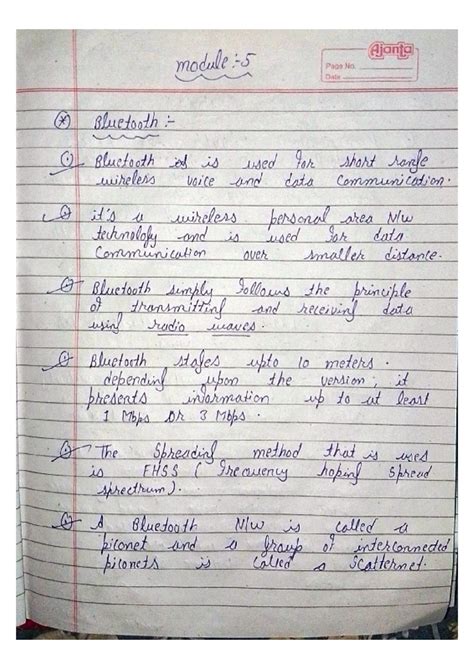 Ajanta
Page No.
Date
module :- 5
Bluetooth :-
Bluetooth is is used for short range
wireless voice and data communication.
it's a wireless personal area N/w
technology and is used for data
Communication over smaller distance.
Bluetooth simply follows the principle
of transmitting and receiving data
using radio waves.
Bluetooth stages upto 10 meters.
depending upon the version, it
presents information up to at least
1 Mbps Or 3 Mbps.
The Spreading method that is uses
is FHSS ( frequency hoping Spread
sprectrum).
A Bluetooth N/W is called a
piconet and a group of interconnected
piconets is called a Scatternet.